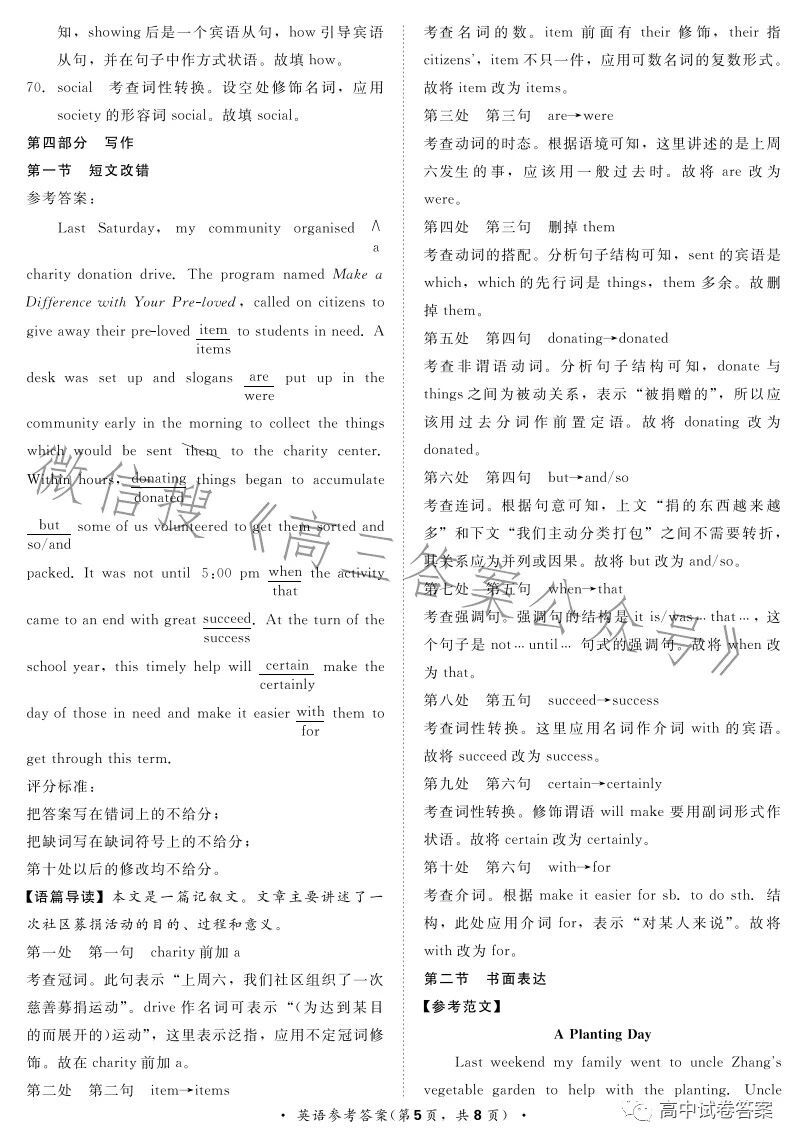 知，showing 后是一个宾语从句，how 引导宾语
从句，并在句子中作方式状语。故填 how。
70. social　考查词性转换。设空处修饰名词，应用
society 的形容词 social。故填 social。
第四部分　写作
第一节　短文改错
参考答案：
Last Saturday, my community organised ∧
a
charity donation drive. The program named Make a
Difference with Your Pre-loved, called on citizens to
give away their pre-loved item to students in need. A
items
desk was set up and slogans are put up in the
were
community early in the morning to collect the things
which would be sent them to the charity center.
Within hours, donating things began to accumulate
donated
but some of us volunteered to get them sorted and
so/and
packed. It was not until 5:00 pm when the activity
that
came to an end with great succeed. At the turn of the
success
school year, this timely help will certain make the
certainly
day of those in need and make it easier with them to
for
get through this term.
评分标准：
把答案写在错词上的不给分；
把缺词写在缺词符号上的不给分；
第十处以后的修改均不给分。
【语篇导读】本文是一篇记叙文。文章主要讲述了一
次社区募捐活动的目的、过程和意义。
第一处　第一句　charity 前加 a
考查冠词。此句表示“上周六，我们社区组织了一次
慈善募捐运动”。drive 作名词可表示“（为达到某目
的而展开的）运动”，这里表示泛指，应用不定冠词修
饰。故在 charity 前加 a。
第二处　第二句　item→items
考查名词的数。item 前面有 their 修饰，their 指
citizens'，item 不只一件，应用可数名词的复数形式。
故将 item 改为 items。
第三处　第三句　are→were
考查动词的时态。根据语境可知，这里讲述的是上周
六发生的事，应该用一般过去时。故将 are 改为
were。
第四处　第三句　删掉 them
考查动词的搭配。分析句子结构可知，sent 的宾语是
which，which 的先行词是 things，them 多余。故删
掉 them。
第五处　第四句　donating→donated
考查非谓语动词。分析句子结构可知，donate 与
things 之间为被动关系，表示“被捐赠的”，所以应
该用过去分词作前置定语。故将 donating 改为
donated。
第六处　第四句　but→and/so
考查连词。根据句意可知，上文“捐的东西越来越
多”和下文“我们主动分类打包”之间不需要转折，
其关系应为并列或因果。故将 but 改为 and/so。
第七处　第五句　when→that
考查强调句。强调句的结构是 it is/was…that…，这
个句子是 not…until… 句式的强调句。故将 when 改
为 that。
第八处　第五句　succeed→success
考查词性转换。这里应用名词作介词 with 的宾语。
故将 succeed 改为 success。
第九处　第六句　certain→certainly
考查词性转换。修饰谓语 will make 要用副词形式作
状语。故将 certain 改为 certainly。
第十处　第六句　with→for
考查介词。根据 make it easier for sb. to do sth. 结
构，此处应用介词 for，表示“对某人来说”。故将
with 改为 for。
第二节　书面表达
【参考范文】
A Planting Day
Last weekend my family went to uncle Zhang's
vegetable garden to help with the planting. Uncle
· 英语参考答案（第 5 页，共 8 页）·
微信搜《高三答案公众号》
高中试卷答案